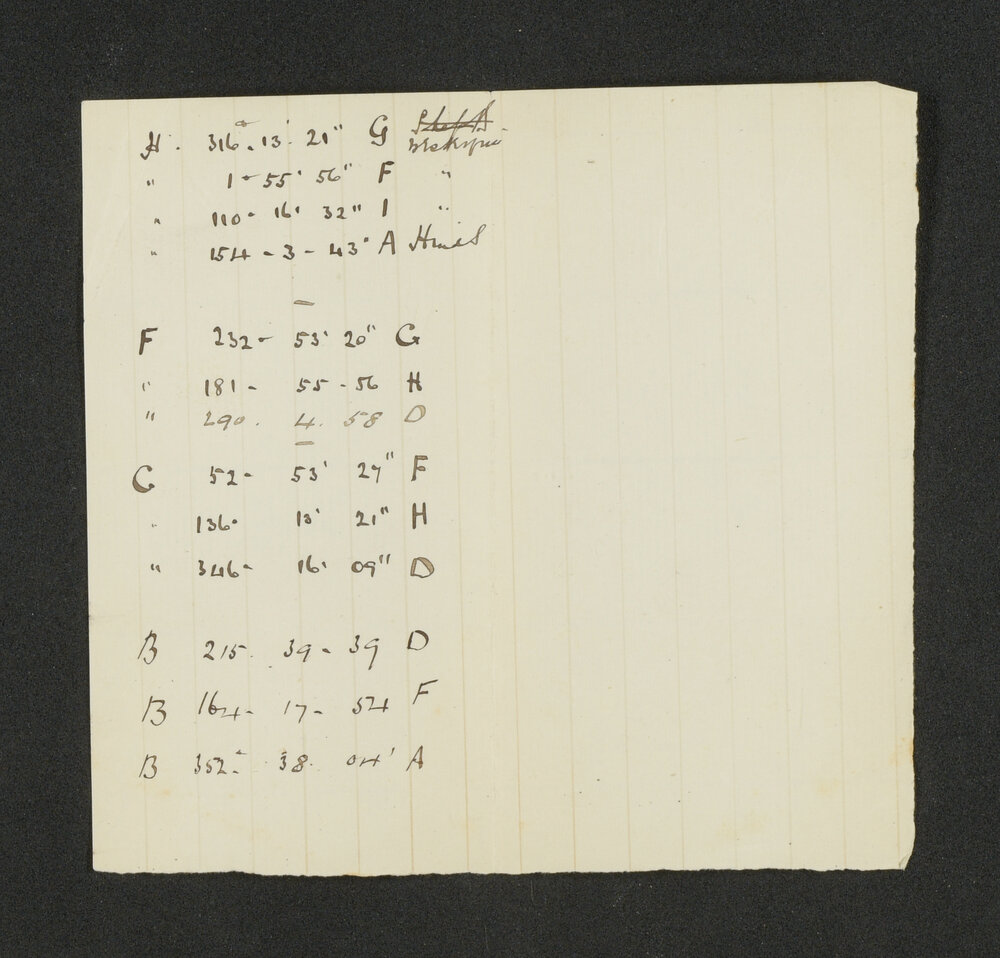 H. 316° 13' 21" G
" 1° 55' 56" F "
" 110° 16' 32" I "
" 154 - 3 - 43" A
F 232° 53' 20" G
" 181 - 55 - 56 H
" 290. 4. 58 D
G 52° 53' 27" F
" 136° 13' 21" H
" 346° 16' 09" D
B 215. 39 - 39 D
B 164 - 17 - 54 F
B 352° 38. 04' A